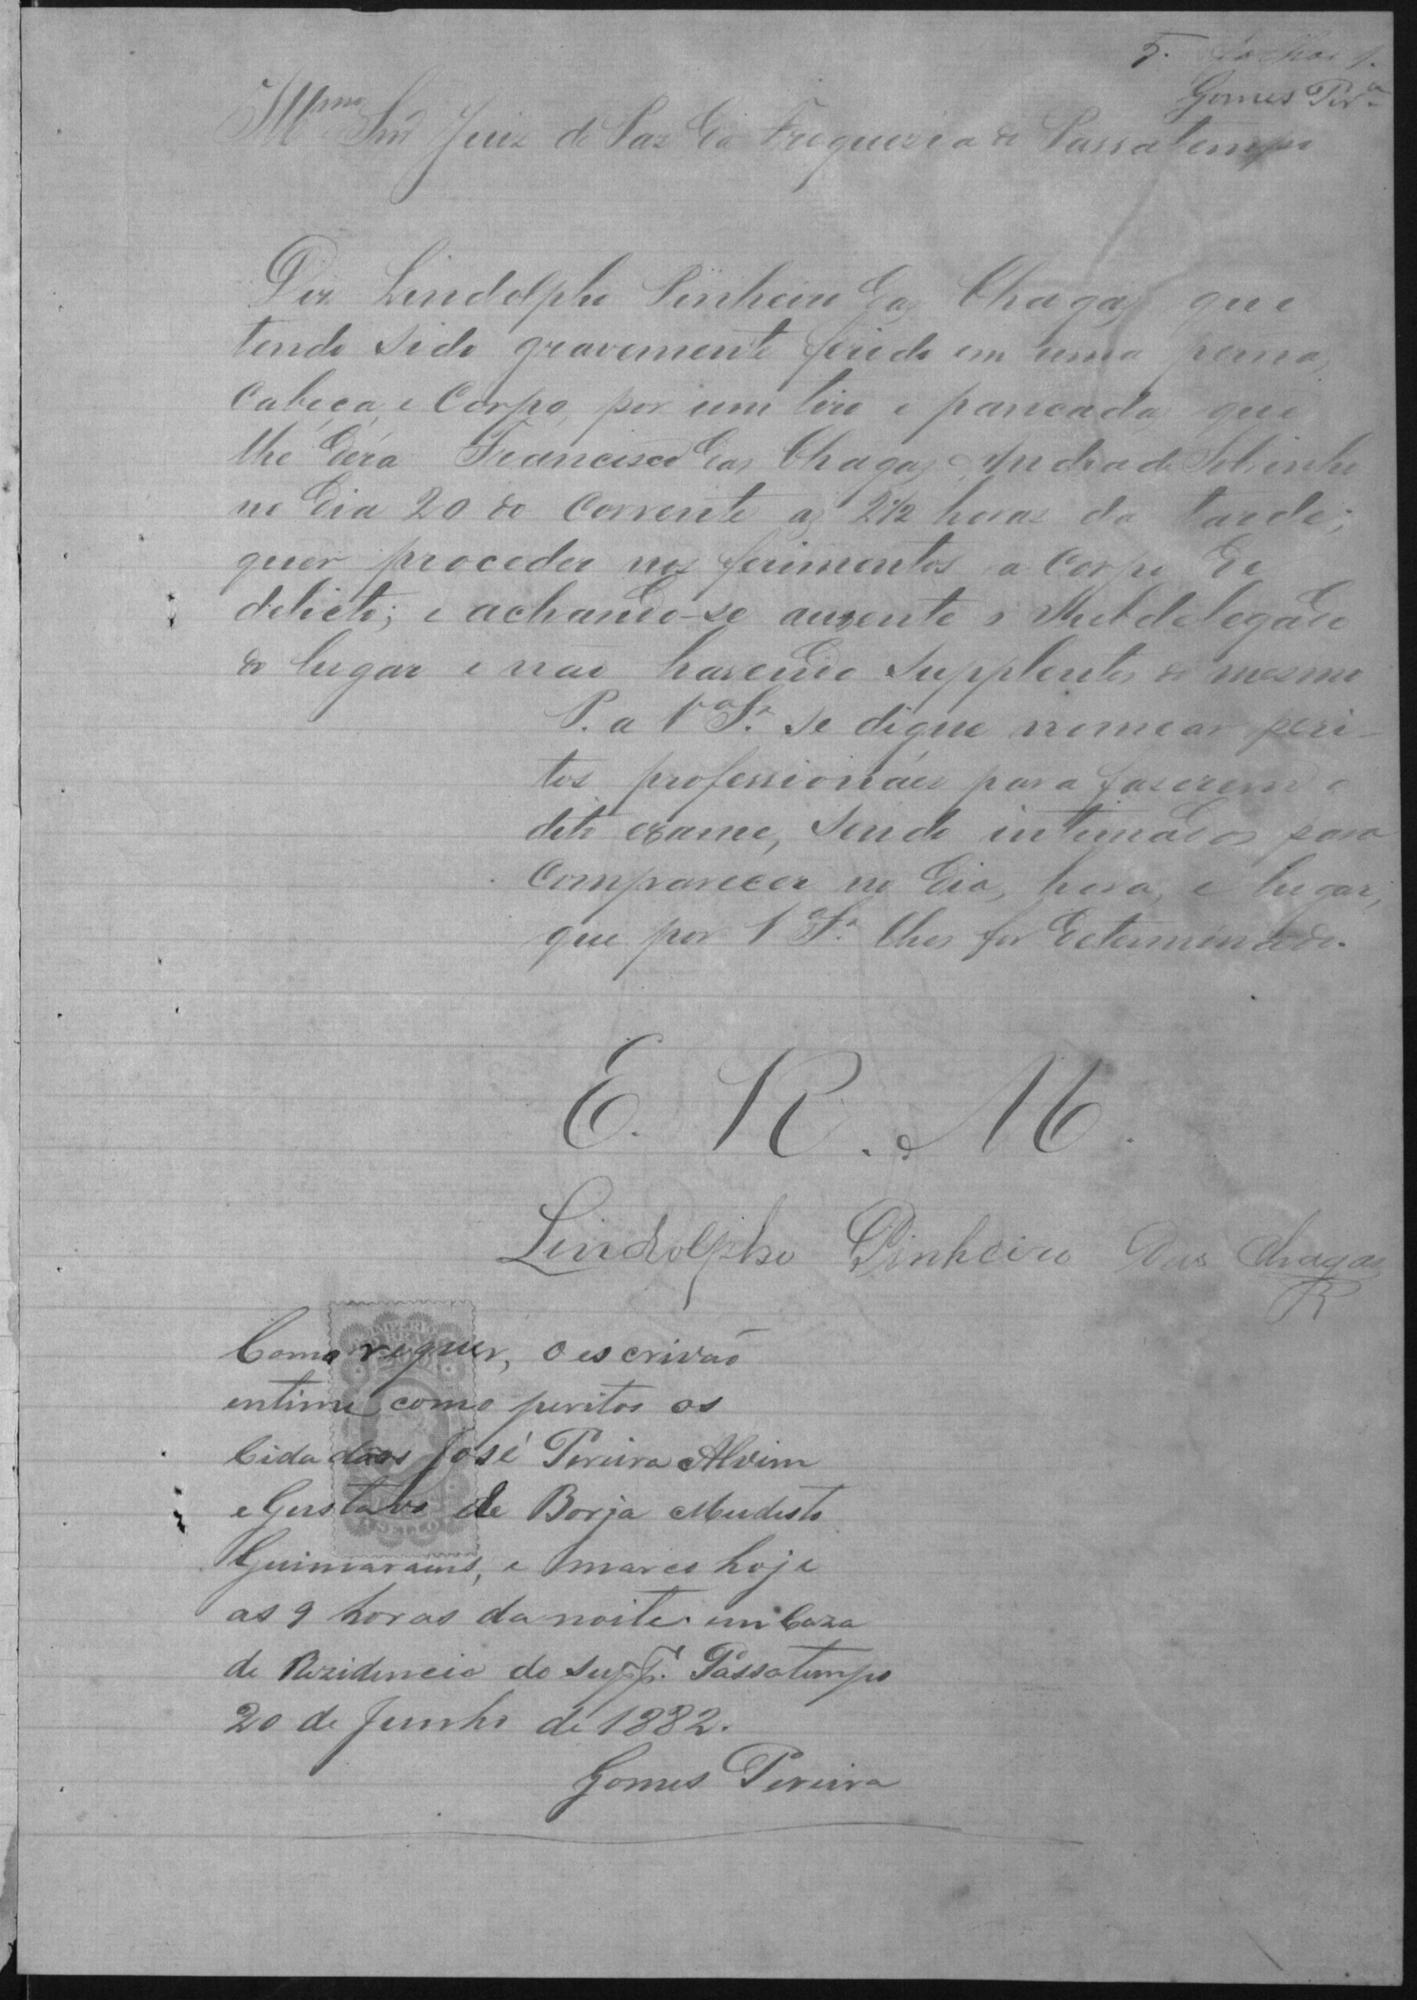 5.
Gomes Per.ª
Illmo Snr Juiz de Paz da Freguezia de Passatempo
Diz Lindolpho Pinheiro das Chagas que
tendo sido gravemente ferido em uma perna,
cabeça, e corpo, por um tiro e pancadas que
lhe déra Francisco das Chagas Andrade Sobrinho
no dia 20 do corrente as 2 1/2 horas da tarde;
quer proceder nos ferimentos a corpo de
delicto; e achando-se auzente o Subdelegado
do lugar e não havendo supplentes do mesmo
P. a V.ª S.ª se digne nomear peri-
tos professionáes para faserem o
dito exame, sendo intimados para
comparecer no dia, hora, e lugar,
que por V.ª S.ª lhes for determinado.
E. R. M.
Lindolpho Pinheiro das Chagas
Como requer, o escrivão
intime como peritos os
Cidadãos José Pereira Alvim
e Gustavo de Borja Mudesto
Guimaraens, e marco hoje
as 9 horas da noite em Caza
de Rezidencia do supp.e Passatempo
20 de Junho de 1882.
Gomes Pereira